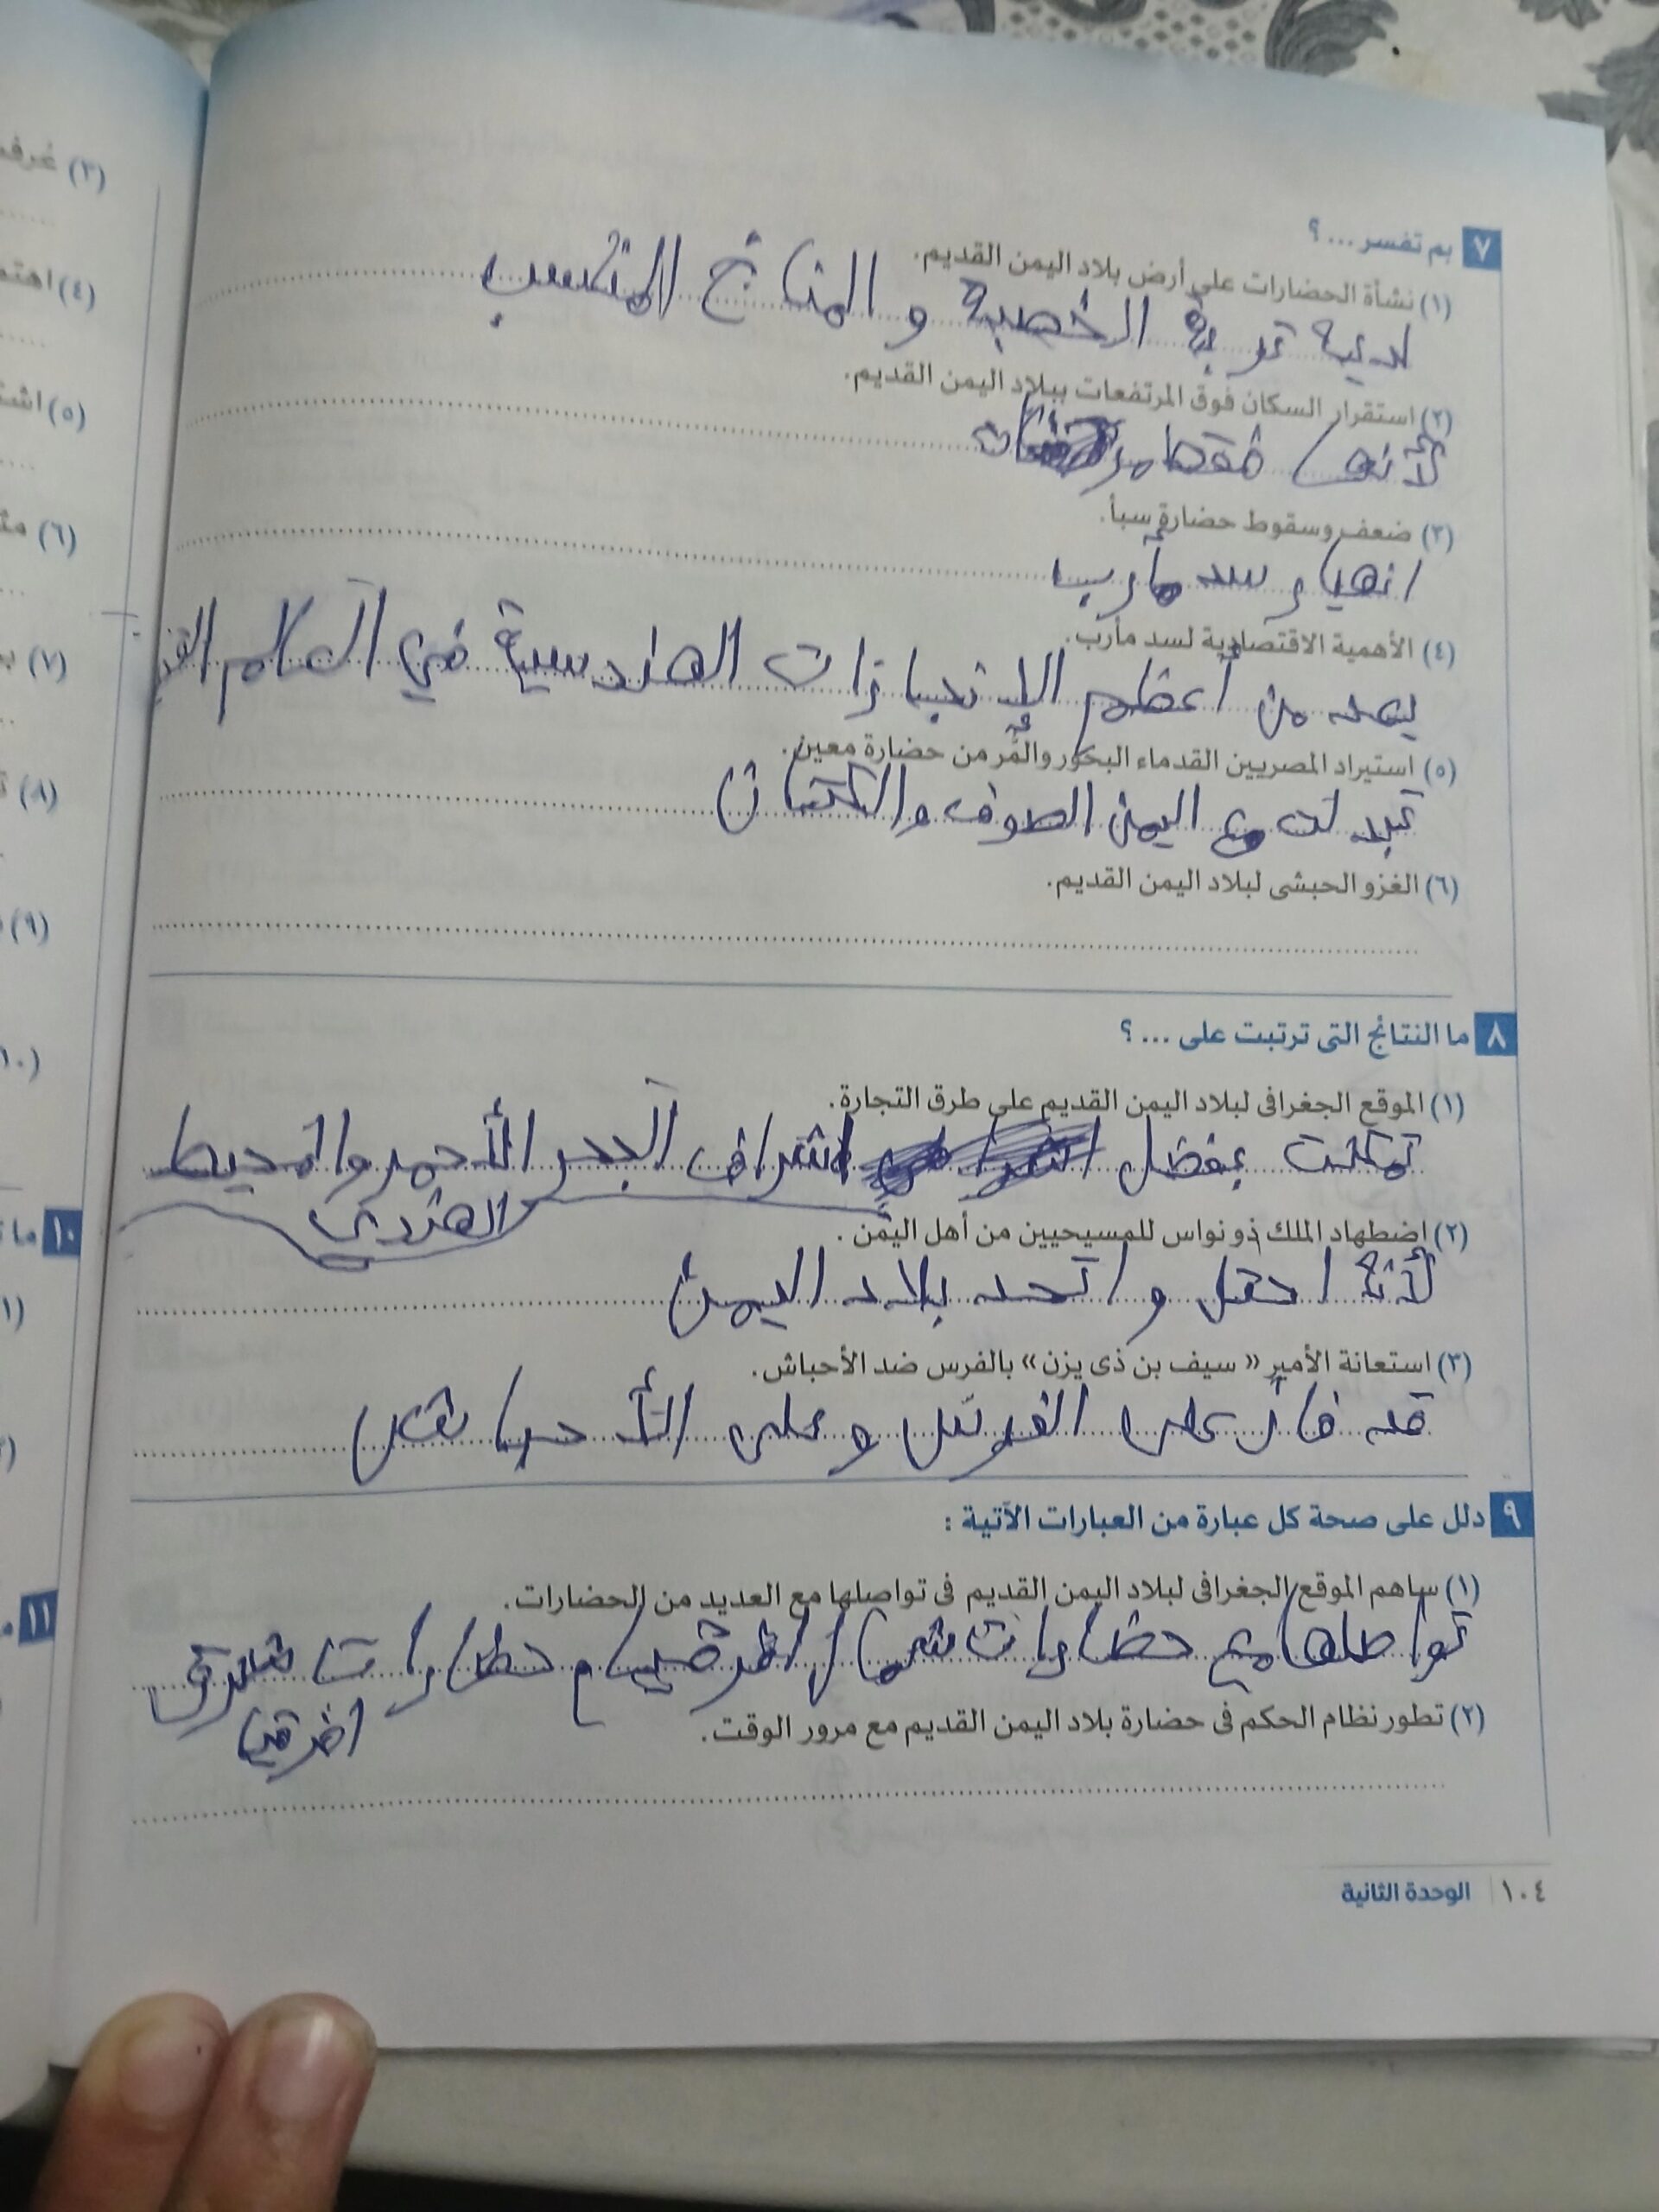 ٧ بم تفسر ... ؟
(١) نشأة الحضارات على أرض بلاد اليمن القديم.
لدية تربة الخصبة و المناخ المناسب
(٢) استقرار السكان فوق المرتفعات ببلاد اليمن القديم.
لأنها
(٣) ضعف وسقوط حضارة سبأ.
انهيار سد مأرب
(٤) الأهمية الاقتصادية لسد مأرب.
يعد من أعظم الإنجازات الهندسية في العالم
(٥) استيراد المصريين القدماء البخور والمُر من حضارة معين.
تبدلت مع اليمن الصوف والكتان
(٦) الغزو الحبشى لبلاد اليمن القديم.
٨ ما النتائج التى ترتبت على ... ؟
(١) الموقع الجغرافى لبلاد اليمن القديم على طرق التجارة.
تمكنت بفضل اشراف البحر الأحمر والمحيط
الهندى
(٢) اضطهاد الملك ذو نواس للمسيحيين من أهل اليمن .
لأنة احتل و اتحد بلاد اليمن
(٣) استعانة الأمير « سيف بن ذى يزن» بالفرس ضد الأحباش.
قد فاز على الفرس وعلى الأحباش
٩ دلل على صحة كل عبارة من العبارات الآتية :
(١) ساهم الموقع الجغرافى لبلاد اليمن القديم فى تواصلها مع العديد من الحضارات.
تواصلها مع حضارات شمال حضارات شرق
افرقيا
(٢) تطور نظام الحكم فى حضارة بلاد اليمن القديم مع مرور الوقت.
١٠٤ الوحدة الثانية
(٣)
(٤)
(٥)
(٦)
(٧)
(٨)
(٩)
١٠
١١